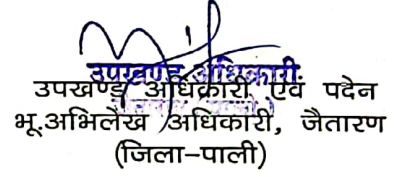 उपखण्ड अधिकारी
उपखण्ड अधिकारी एवं पदेन
भू.अभिलेख अधिकारी, जैतारण
(जिला-पाली)